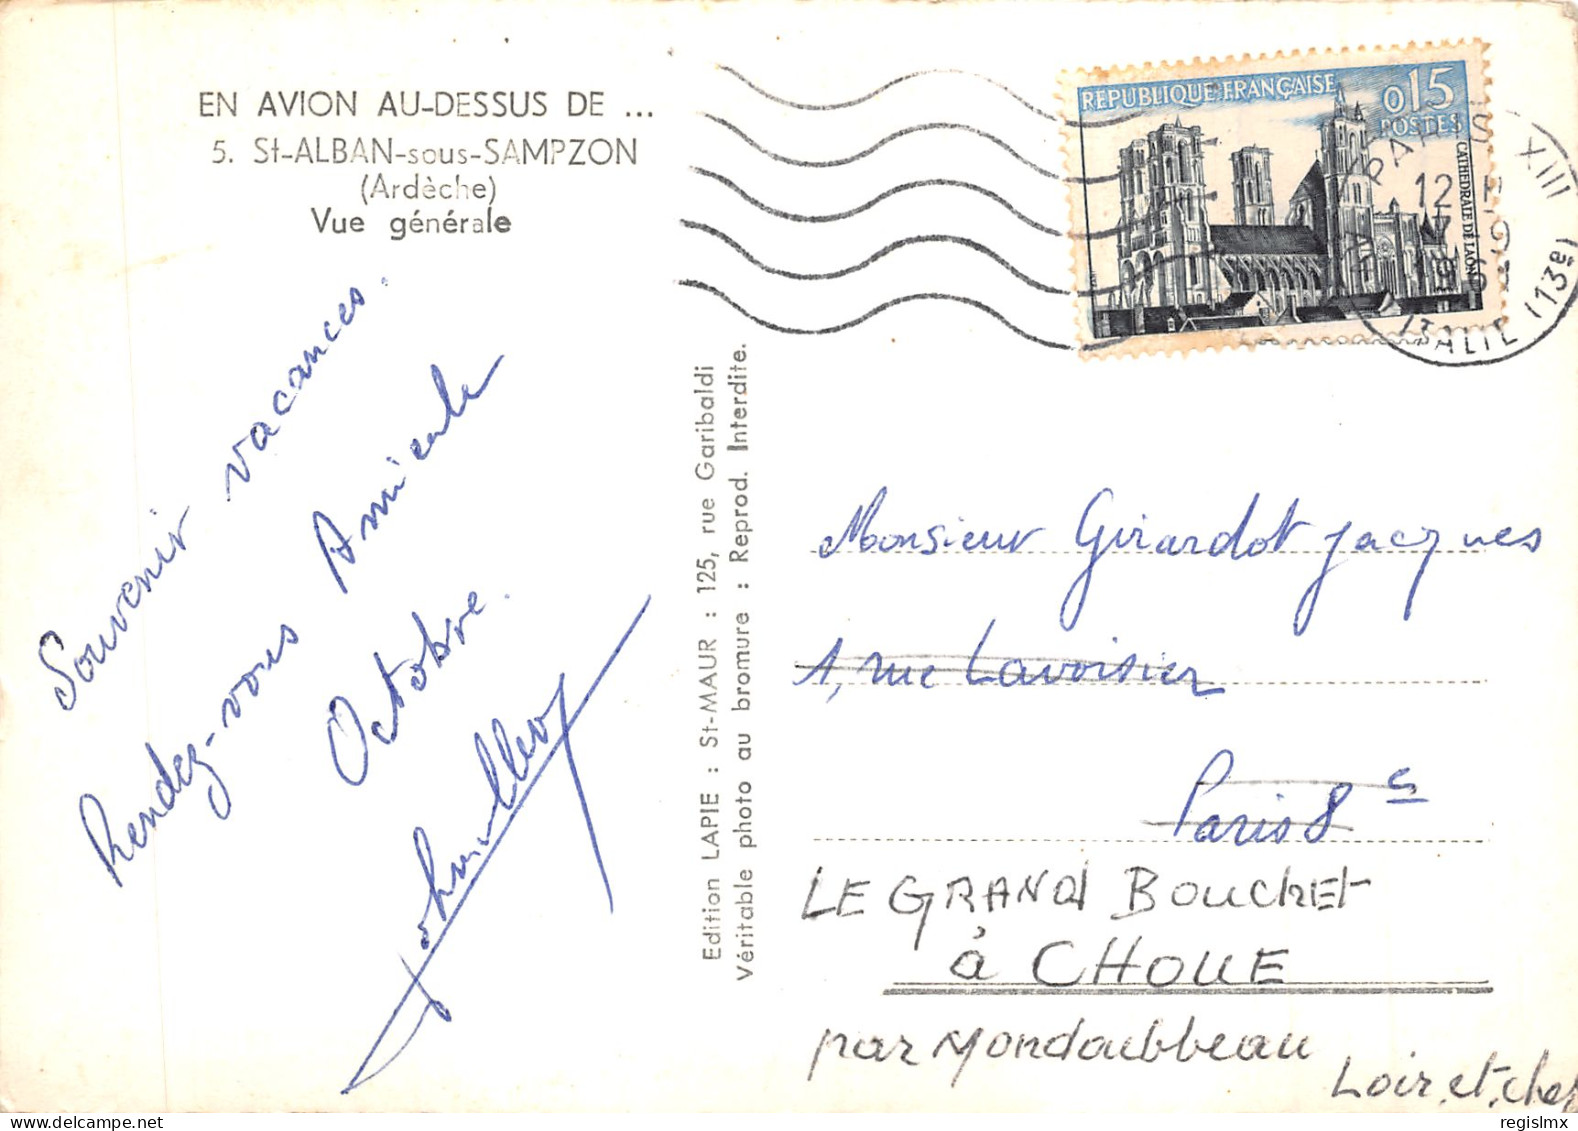 EN AVION AU-DESSUS DE ...
5. St-ALBAN-sous-SAMPZON
(Ardèche)
Vue générale
Souvenir vacances.
Rendez-vous Amicale
Octobre.
Edition LAPIE : St-MAUR : 125, rue Garibaldi
Véritable photo au bromure : Reprod. Interdite.
REPUBLIQUE FRANÇAISE
0,15
POSTES
CATHEDRALE DE LAON
PARIS XIII
12 H
ITALIE (13e)
Monsieur Girardot Jacques
1, rue Lavoisier
Paris 8e
LE GRAND BOUCHET
à CHOUE
par Mondoubbeau
Loir.et.cher
regislmx